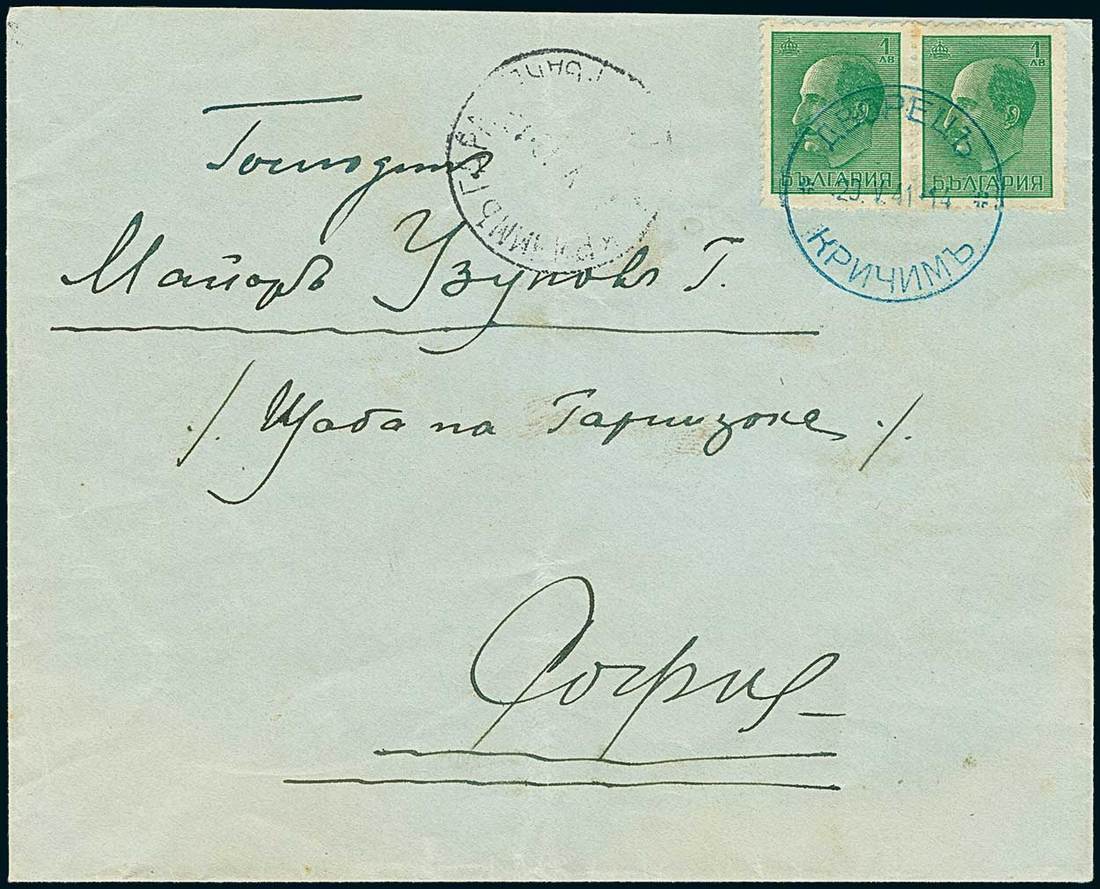 1 ЛВ
БЪЛГАРИЯ
1 ЛВ
БЪЛГАРИЯ
ДВОРЕЦЪ
V.41-14
КРИЧИМЪ
КРИЧИМЪ
Господин
Майоръ Узуновъ Г.
/. Щаба на Гарнизона ./.
София